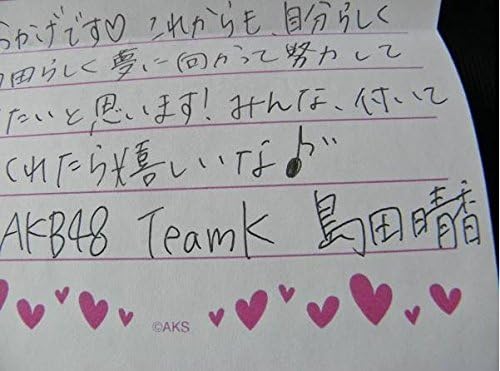 かげです♡ これからも、自分らしく
田らしく夢に向かって努力して
たいと思います!みんな、付いて
くれたら嬉しいな♪
AKB48 TeamK 島田晴香
©AKS